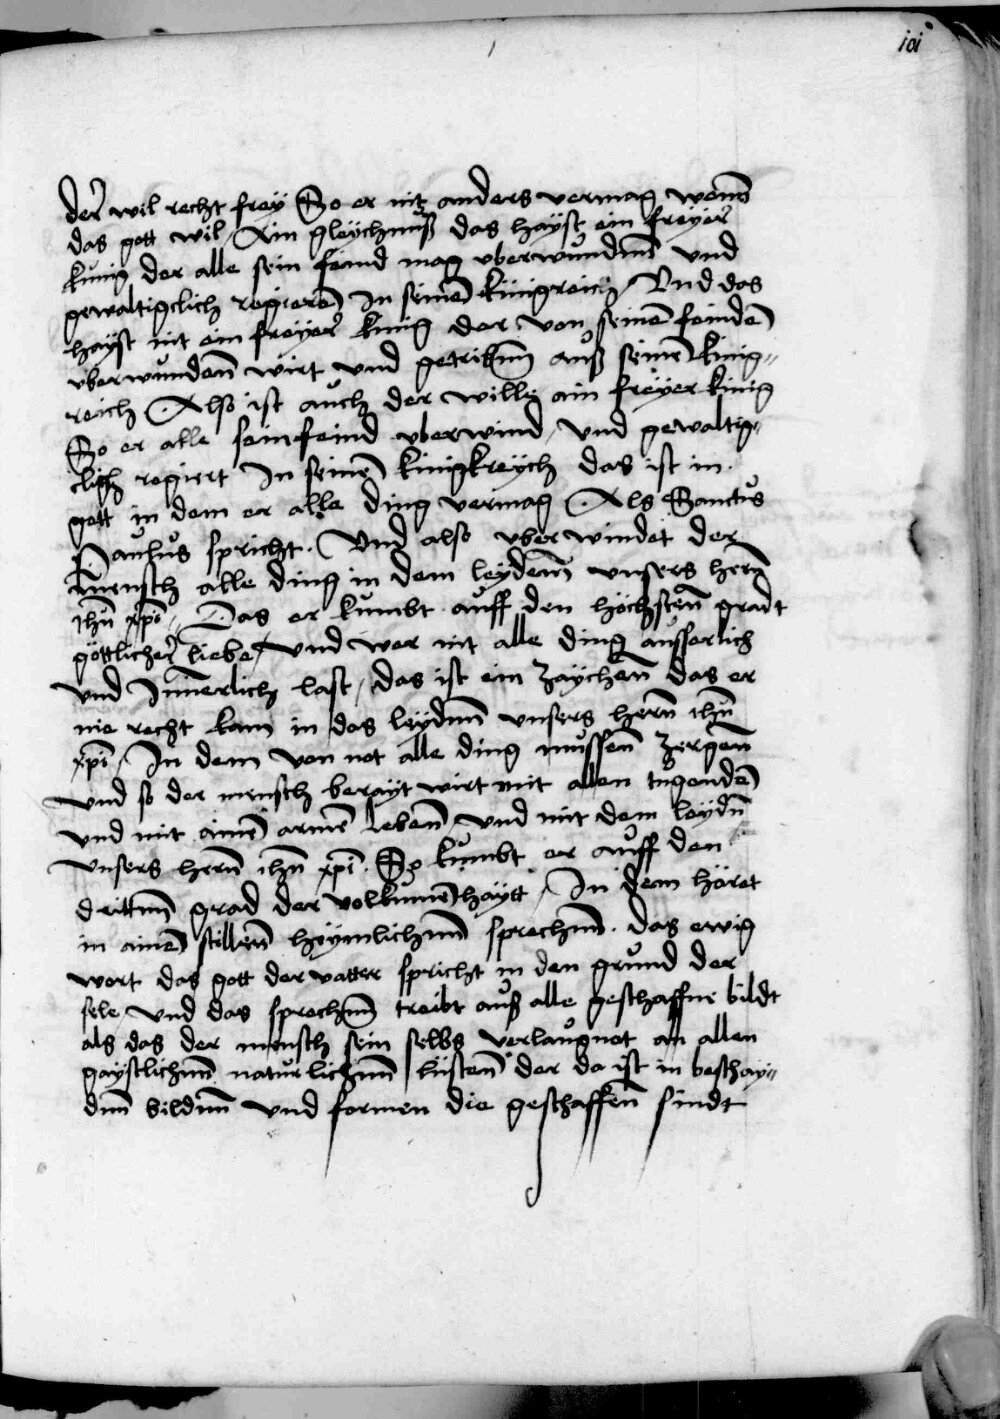 ioi
der wil recht frey So er nit anders vermag wenn̄
das gott wil / Ain gleychnuß das hayst ein freyer
kunig der alle sein feind mag vberwundenn̄ vnd
gewaltigclich regieren̄ In seinen̄ kunigreich / Vnd das
hayst nit ein freyer kinig der von seinen̄ feinden̄
vberwundenn̄ wirt vnd getribenn̄ auß seinen̄ kinig„
reich . Also ist auch der wille ain freyer kinig
So er alle sein feind vberwind / vnd gewaltig„
clich regiert In seinen̄ kinigkreych das ist in
gott in dem er alle ding vermag . Als Sanctus
Paulus spricht . Vnd also vberwindet der
mensch alle ding in dem leydenn̄ vnsers hern̄
ihū xpī / Das er kumbt auff den höchstenn̄ gradt
göttlicher liebe / vnd wer nit alle ding ausserlich
vnd Innerlich last / das ist ein zaychenn̄ das er
nie recht kam in das leydenn̄ vnsers herrn̄ ihū
xpī / In dem von not alle ding mussenn̄ zergenn̄
vnd so der mensch berayt wirt mit allen tugenden̄
vnd mit ainē armē lebenn̄ / vnd mit dem leydn̄
vnsers herrn̄ ihū xpī . So kumbt er auff den
drittenn̄ grad der volkumēhaytt / In dem höret
in ainē stillenn̄ heymlichenn̄ sprechenn̄ . das ewig
wort das gott der vatter spricht in den grund der
sele / vnd das sprechenn̄ treibt auß alle geschaffne bildt
als das der mensch sein selbs verlaugnet an allen
gaystlichenn̄ naturlichenn̄ lustenn̄ der da ist in beschay„
denn̄ bildenn̄ vnd formen die geschaffenn̄ sindt